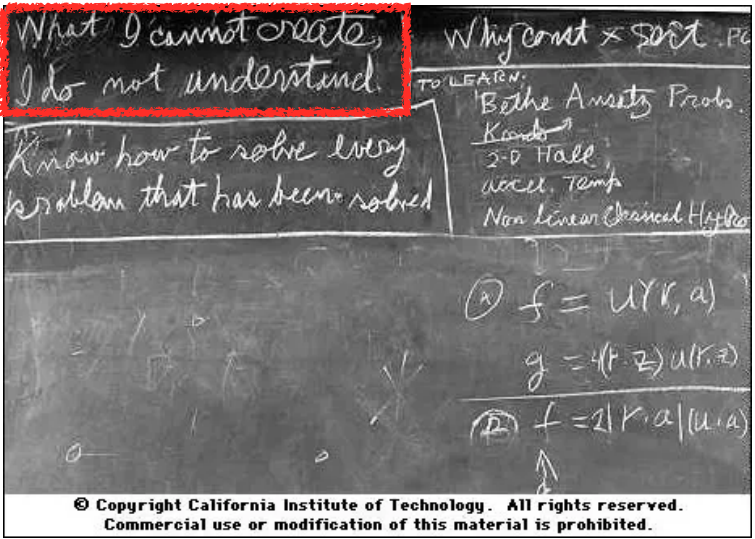 What I cannot create,
I do not understand.
Know how to solve every
problem that has been solved
Why const × sort . PO
TO LEARN:
Bethe Ansatz Probs.
Kondo
2-D Hall
accel. Temp
Non linear Classical Hydro
Ⓐ f = u(r, a)
g = 4(r·z) u(r,z)
Ⓑ f = 2|r·a|(u·a)
© Copyright California Institute of Technology. All rights reserved.
Commercial use or modification of this material is prohibited.